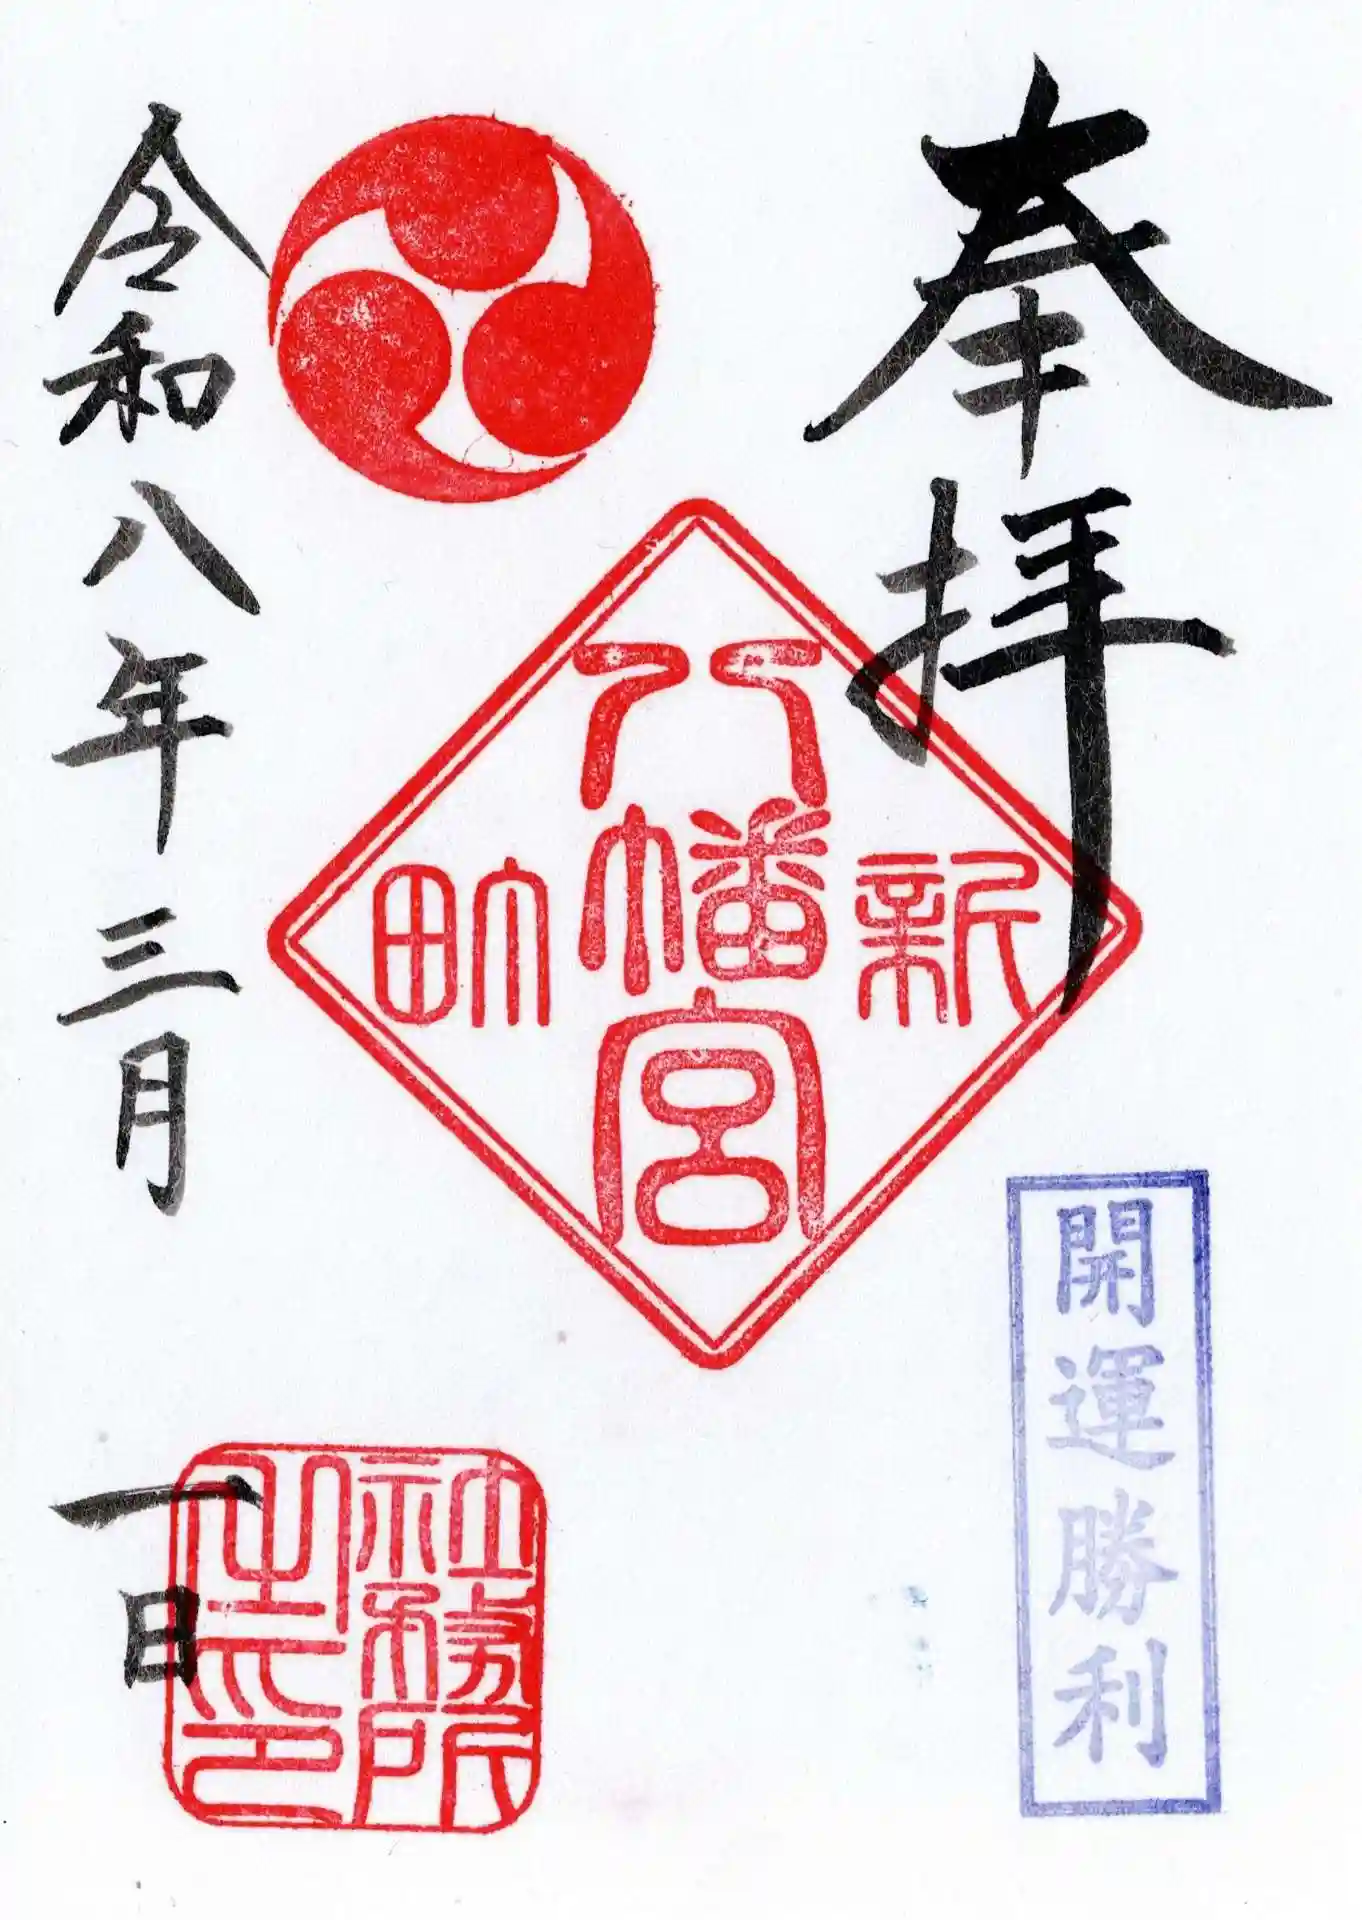 奉拝
開運勝利
新
八幡宮
町
社務所
之印
令和八年三月一日